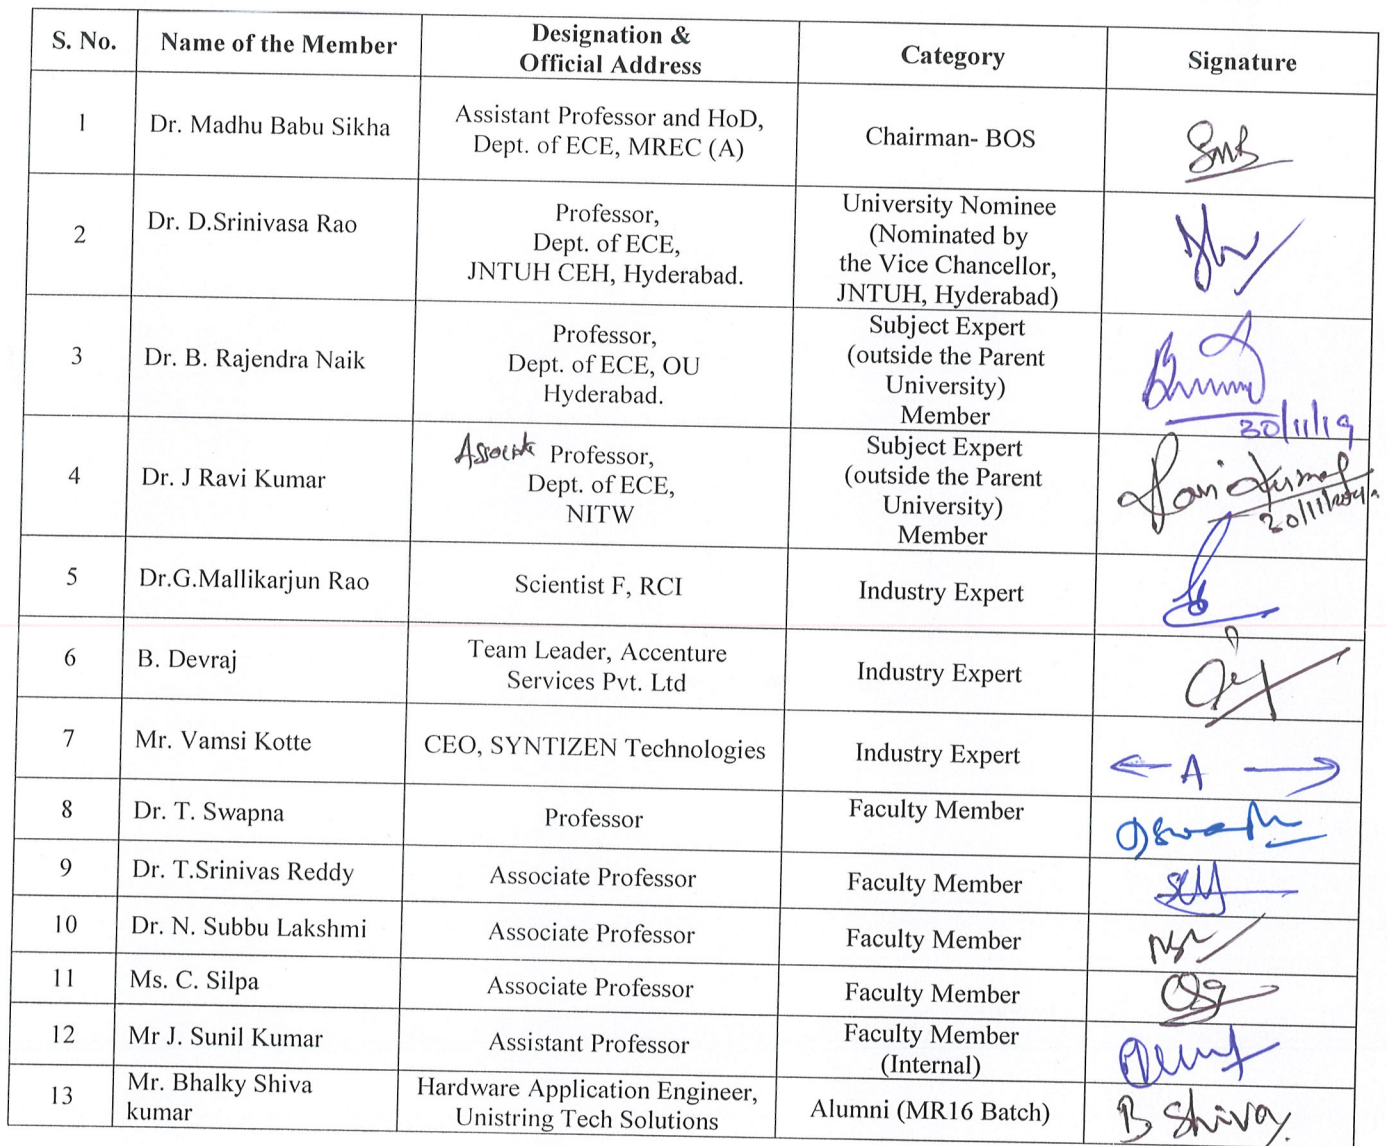 S. No.
Name of the Member
Designation &
Official Address
Category
Signature
1
Dr. Madhu Babu Sikha
Assistant Professor and HoD,
Dept. of ECE, MREC (A)
Chairman- BOS
SMB
2
Dr. D.Srinivasa Rao
Professor,
Dept. of ECE,
JNTUH CEH, Hyderabad.
University Nominee
(Nominated by
the Vice Chancellor,
JNTUH, Hyderabad)
3
Dr. B. Rajendra Naik
Professor,
Dept. of ECE, OU
Hyderabad.
Subject Expert
(outside the Parent
University)
Member
30/11/19
4
Dr. J Ravi Kumar
Associate Professor,
Dept. of ECE,
NITW
Subject Expert
(outside the Parent
University)
Member
Ravi Kumar
5
Dr.G.Mallikarjun Rao
Scientist F, RCI
Industry Expert
6
B. Devraj
Team Leader, Accenture
Services Pvt. Ltd
Industry Expert
7
Mr. Vamsi Kotte
CEO, SYNTIZEN Technologies
Industry Expert
A
8
Dr. T. Swapna
Professor
Faculty Member
9
Dr. T.Srinivas Reddy
Associate Professor
Faculty Member
10
Dr. N. Subbu Lakshmi
Associate Professor
Faculty Member
11
Ms. C. Silpa
Associate Professor
Faculty Member
12
Mr J. Sunil Kumar
Assistant Professor
Faculty Member
(Internal)
13
Mr. Bhalky Shiva
kumar
Hardware Application Engineer,
Unistring Tech Solutions
Alumni (MR16 Batch)
B Shiva